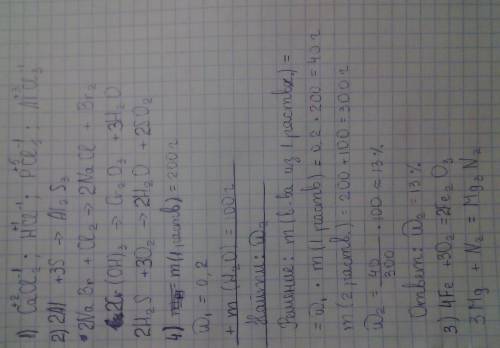 1) CaCl₂⁻¹; HCl⁻¹; PCl₅⁻¹; AlCl₃⁻¹
2) 2Al + 3S → Al₂S₃
2NaBr + Cl₂ → 2NaCl + Br₂
2Cr(OH)₃ → Cr₂O₃ + 3H₂O
2H₂S + 3O₂ → 2H₂O + 2SO₂
4) m(1 раств) = 200г
ω₁ = 0,2
+ m(H₂O) = 100г
Найти: ω₂
Решение: m(в-ва из 1 раств) =
= ω₁ · m(1 раств) = 0.2 · 200 = 40г
m(2 раств) = 200 + 100 = 300г
ω₂ = 40/300 · 100 ≈ 13%
Ответ: ω₂ = 13%
3) 4Fe + 3O₂ = 2Fe₂O₃
3Mg + N₂ = Mg₃N₂